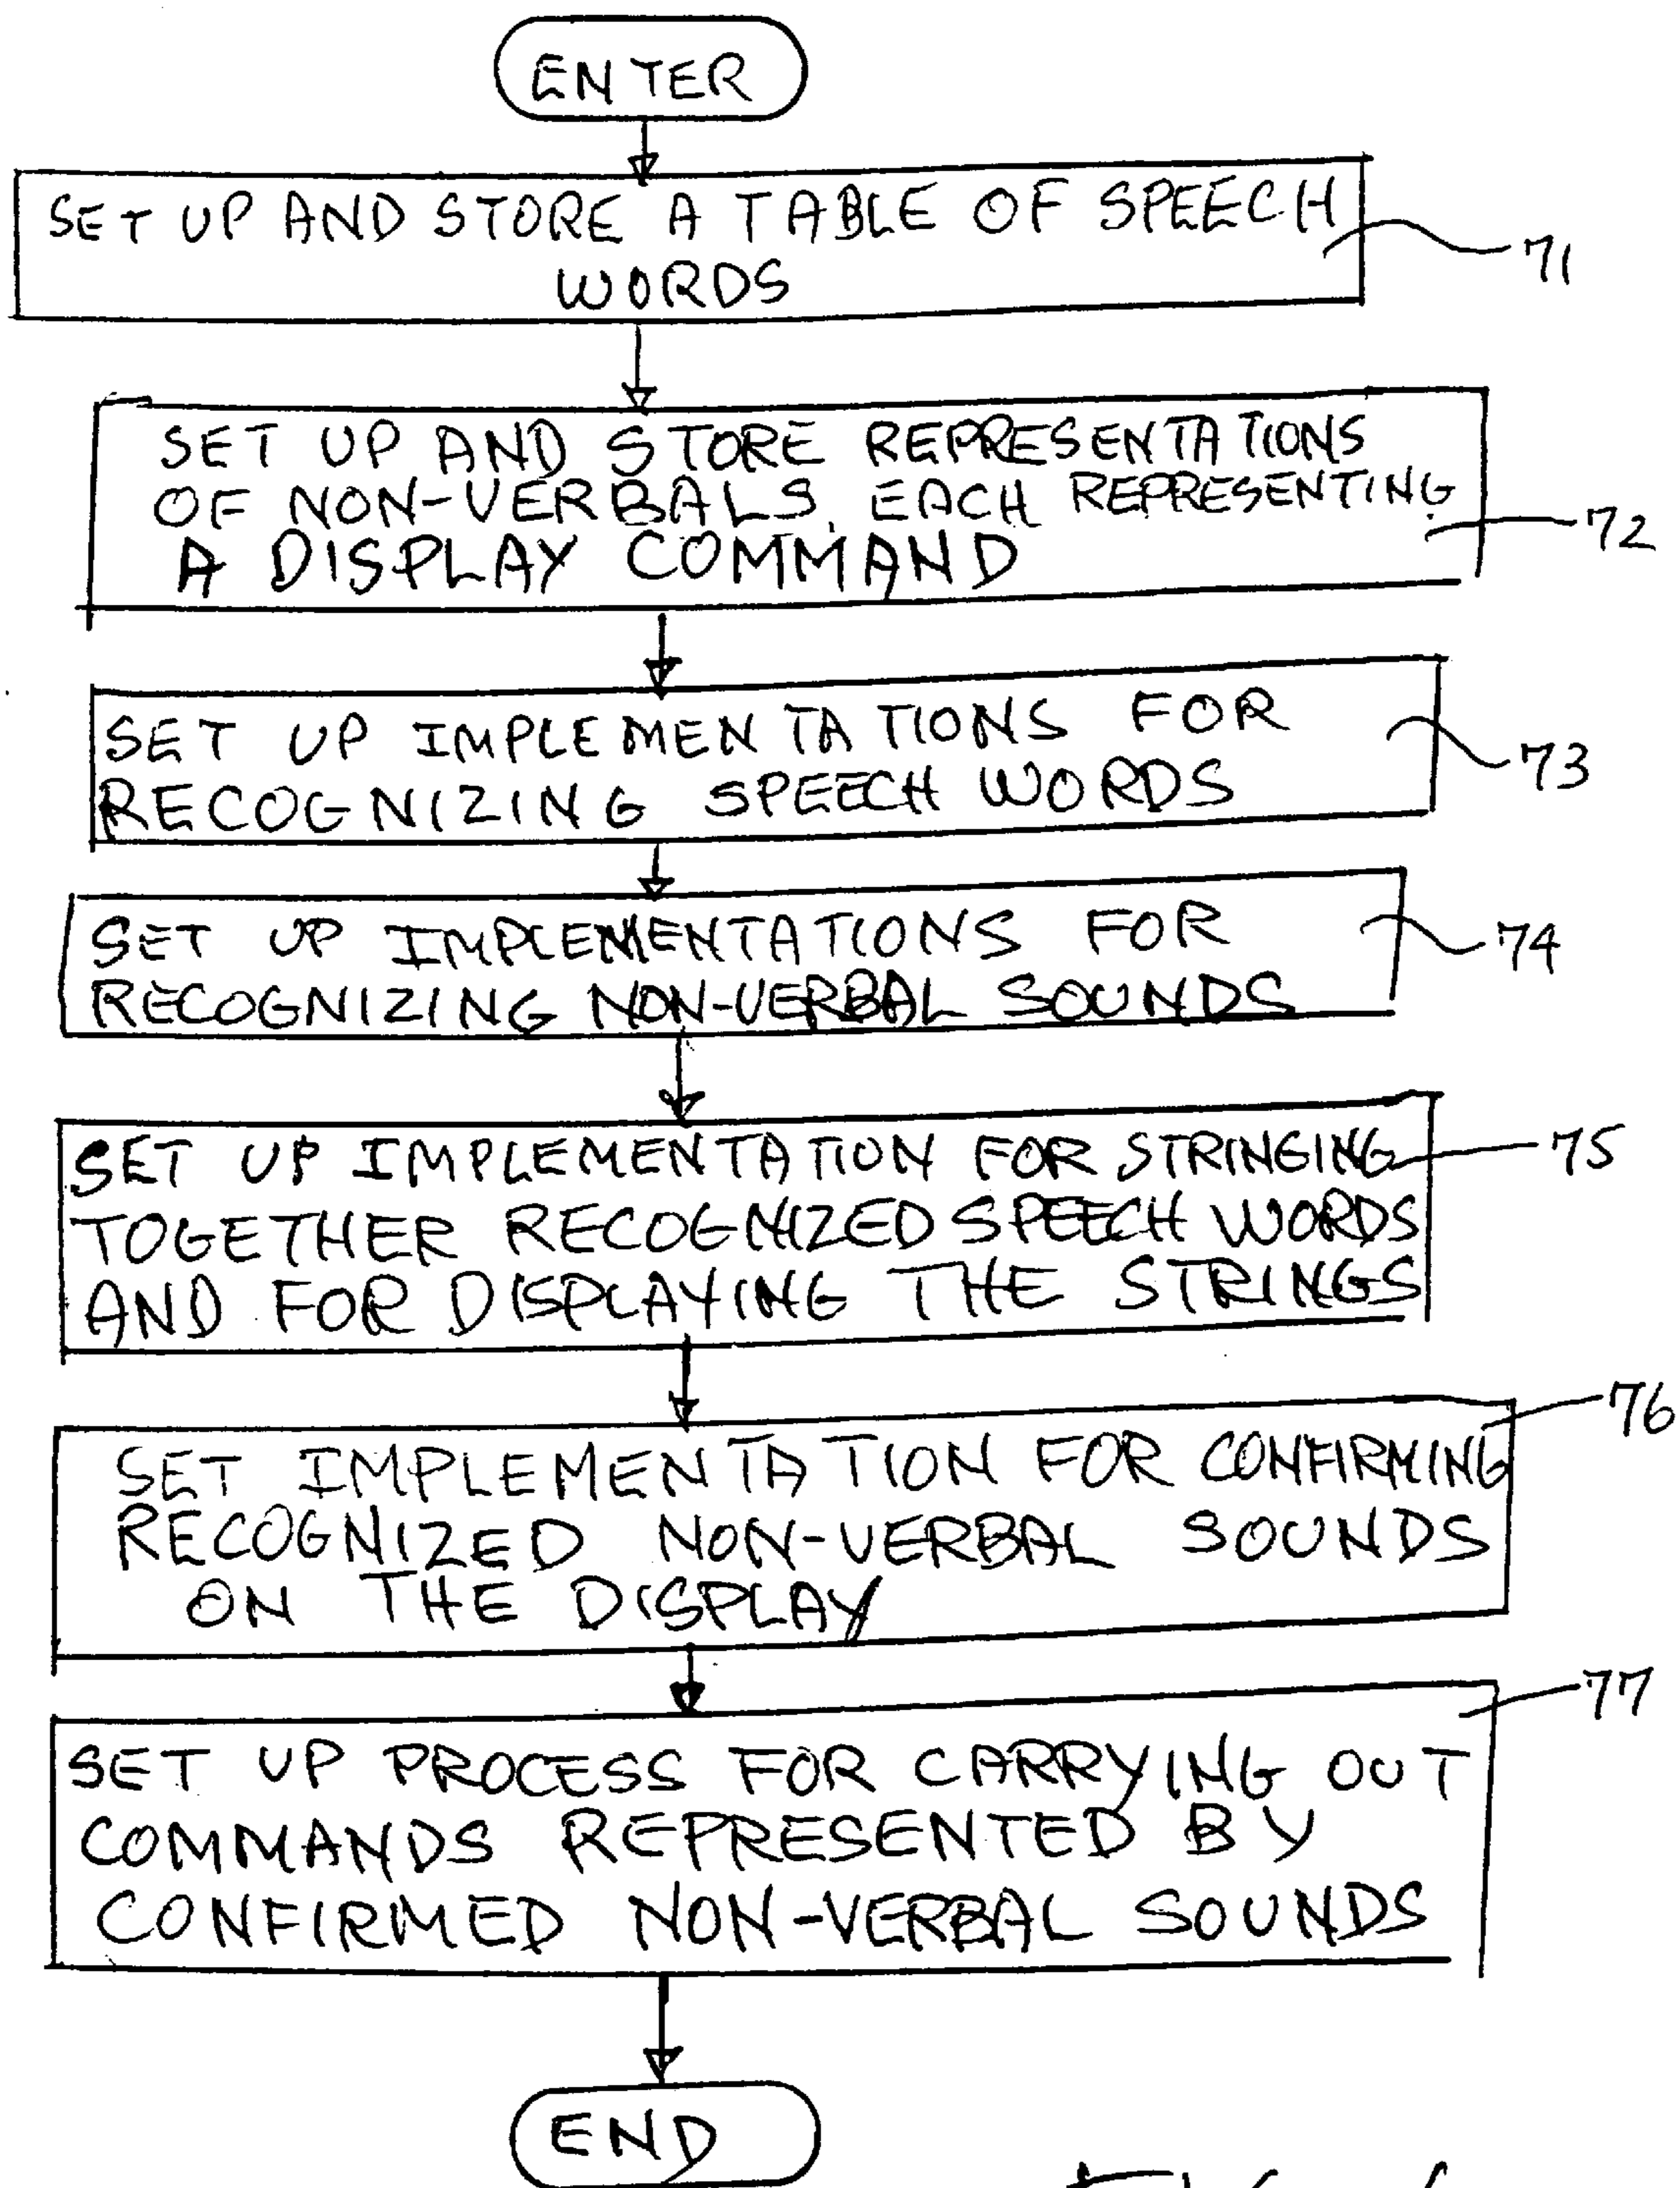 ENTER
SET UP AND STORE A TABLE OF SPEECH
WORDS
71
SET UP AND STORE REPRESENTATIONS
OF NON-VERBALS, EACH REPRESENTING
A DISPLAY COMMAND
72
SET UP IMPLEMENTATIONS FOR
RECOGNIZING SPEECH WORDS
73
SET UP IMPLEMENTATIONS FOR
RECOGNIZING NON-VERBAL SOUNDS
74
SET UP IMPLEMENTATION FOR STRINGING
TOGETHER RECOGNIZED SPEECH WORDS
AND FOR DISPLAYING THE STRINGS
75
SET IMPLEMENTATION FOR CONFIRMING
RECOGNIZED NON-VERBAL SOUNDS
ON THE DISPLAY
76
SET UP PROCESS FOR CARRYING OUT
COMMANDS REPRESENTED BY
CONFIRMED NON-VERBAL SOUNDS
77
END